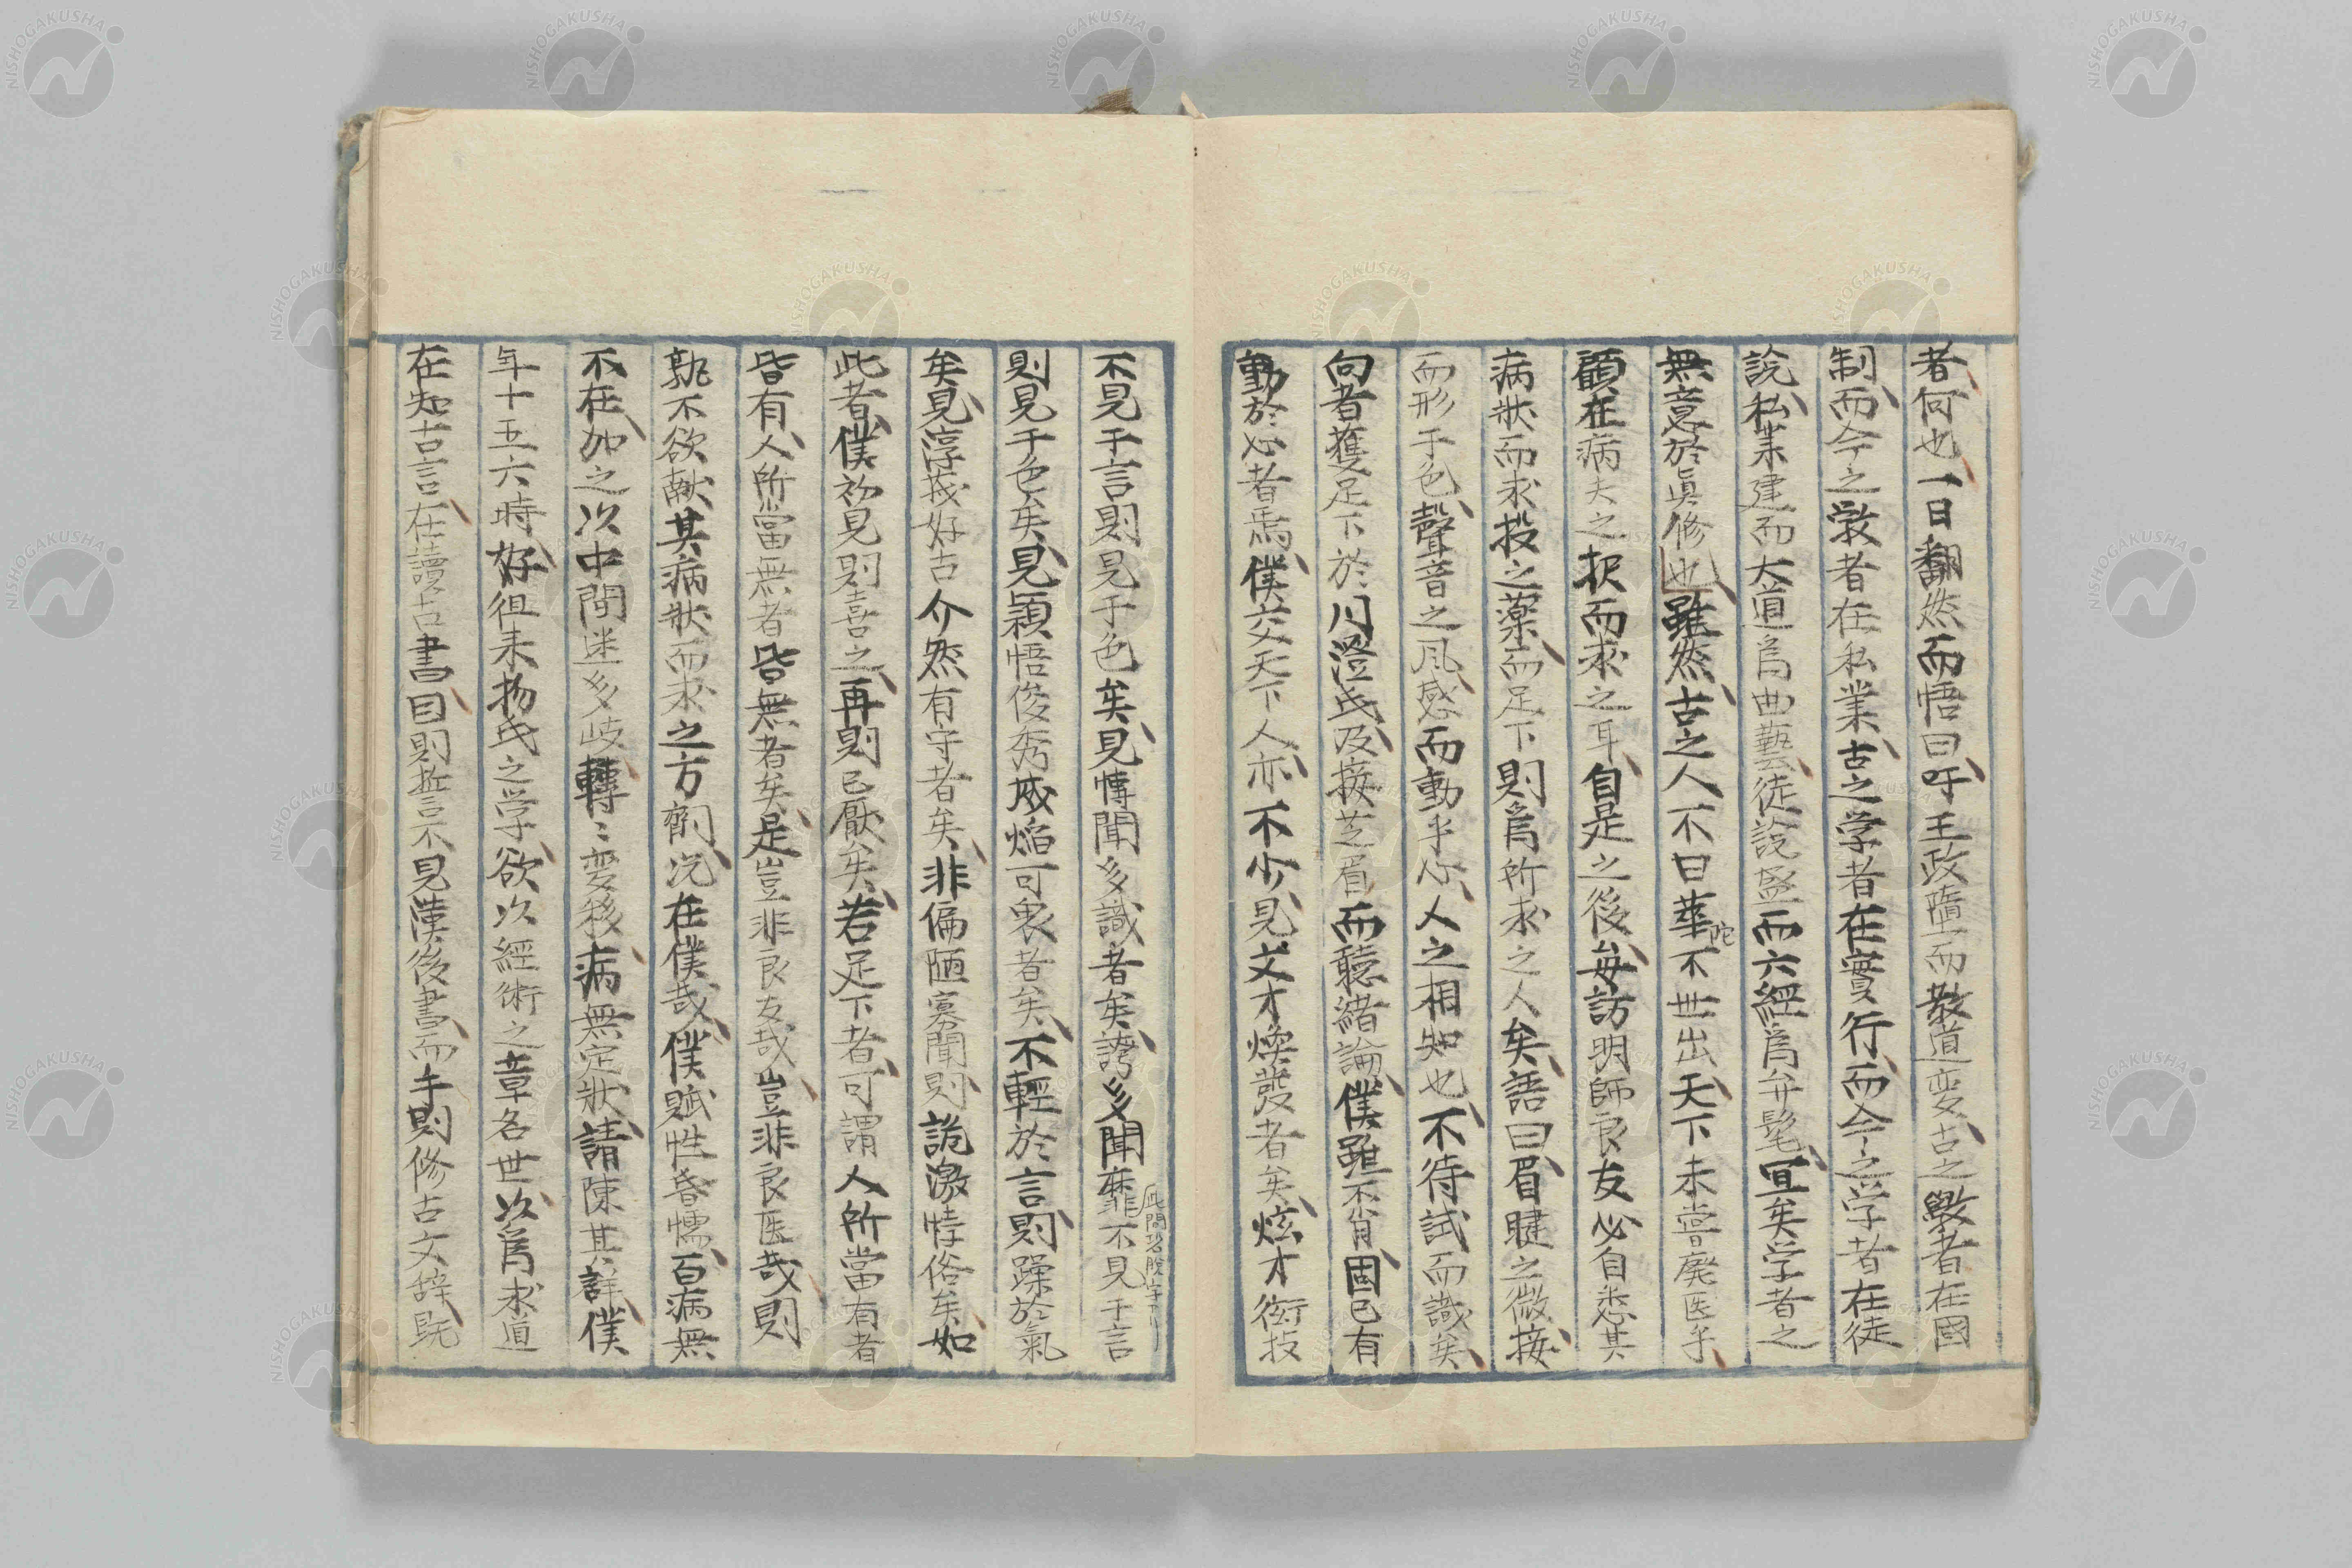 者何也一日翻然而悟曰吁王政墮而教道変古之教者在國
制而今之教者在私業古之学者在實行而今之学者在徒
說私業建而大道為曲藝徒說盛而六經為弁髦宜矣学者之
無意於眞修也雖然古之人不曰華陀不世出天下未嘗廃医乎
顧在病夫之択而求之耳自是之後毎訪明師良友必自悉其
病状而求投之薬而足下則為所求之人矣語曰眉睫之微接
而形于色聲音之风感而動乎心人之相知也不待試而識矣
向者獲足下於川澄氏及接芝眉而聴緒論僕雖不肖固已有
動於心者焉僕交天下人亦不少見文才煥發者矣炫才衒技
不見于言則見于色矣見博聞多識者矣誇多聞靡不見于言
此間恐脱字アリ
則見于色矣見穎悟俊秀威焔可畏者矣不輕於言則躁於氣
矣見淳茂好古介然有守者矣非偏陋寡聞則詭激悖俗矣如
此者僕初見則喜之再則已厭矣若足下者可謂人所當有者
皆有人所當無者皆無者矣是豈非良友哉豈非良医哉則
孰不欲献其病状而求之方剤况在僕哉僕賦性昏懦百病無
不在加之以中間迷多岐轉〻変移病無定状請陳其詳僕
年十五六時好徂来物氏之学欲以經術文章名世以為求道
在知古言在讀古書目則誓不見漢後書而手則修古文辞既